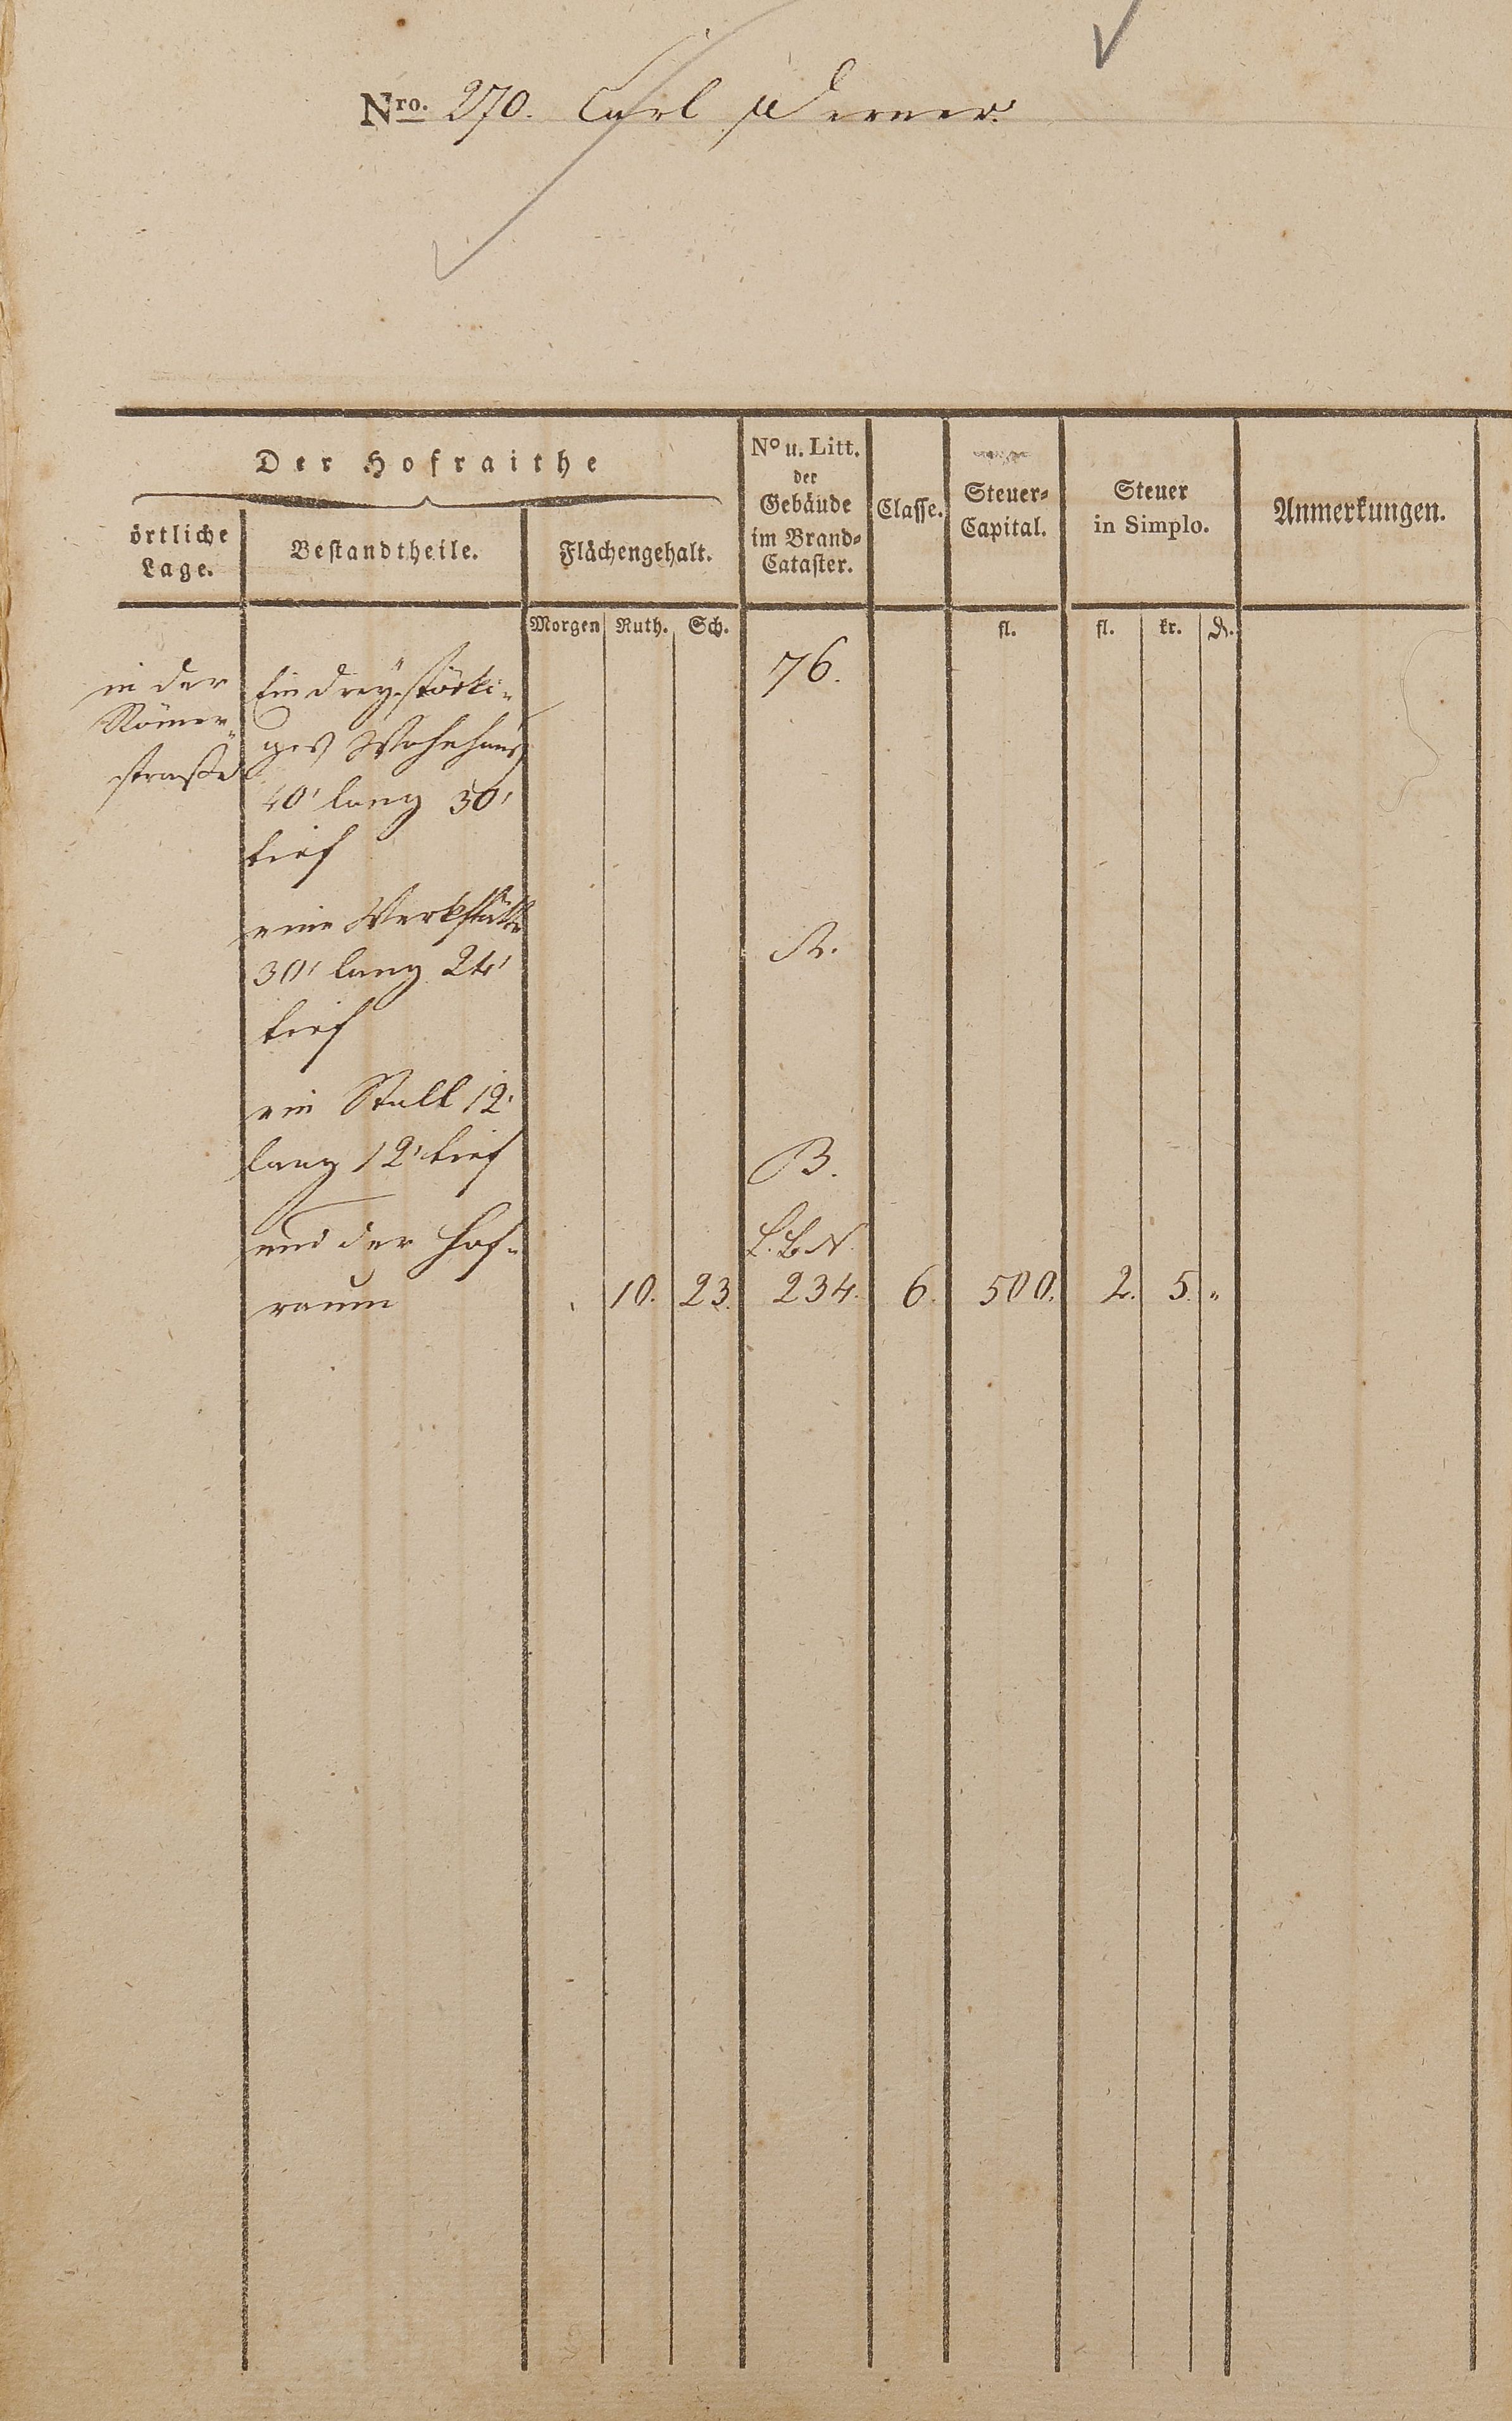 Nro. 270. Carl Werner.
Der Hofraithe
örtliche Lage.
Bestandtheile.
Flächengehalt.
No u. Litt. der Gebäude im Brand-Cataster.
Classe.
Steuer-Capital.
Steuer in Simplo.
Anmerkungen.
Morgen Ruth. Sch. fl. fl. kr. d.
in der Ein dreystöcki- 76.
Römer- ges Wohnhaus
straße 40' lang 30'
tief
eine Werkstätte
30' lang 24' A.
tief
ein Stall 12'
lang 12' tief B.
und der Hof- L. B. N.
raum 10. 23. 234. 6. 500. 2. 5. "